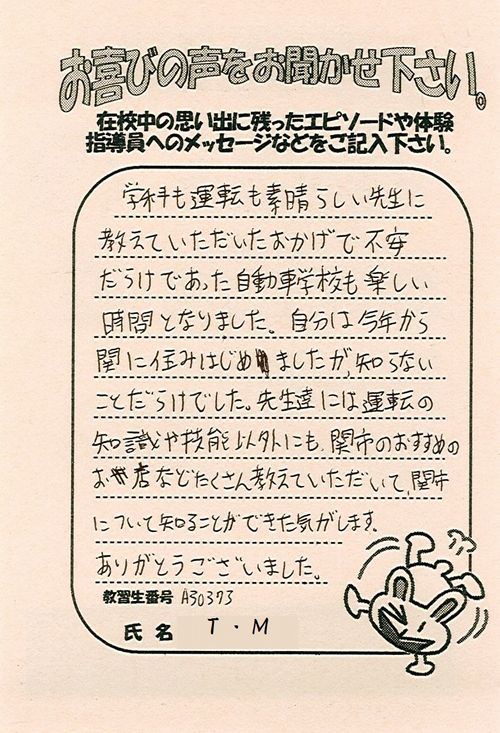 お喜びの声をお聞かせ下さい。
在校中の思い出に残ったエピソードや体験
指導員へのメッセージなどをご記入下さい。
学科も運転も素晴らしい先生に
教えていただいたおかげで不安
だらけであった自動車学校も楽しい
時間となりました。自分は今年から
関に住みはじめましたが、知らない
ことだらけでした。先生達には運転の
知識や技能以外にも、関市のおすすめの
お店などたくさん教えていただいて、関市
について知ることができた気がします。
ありがとうございました。
教習生番号 A30373
氏名 T・M